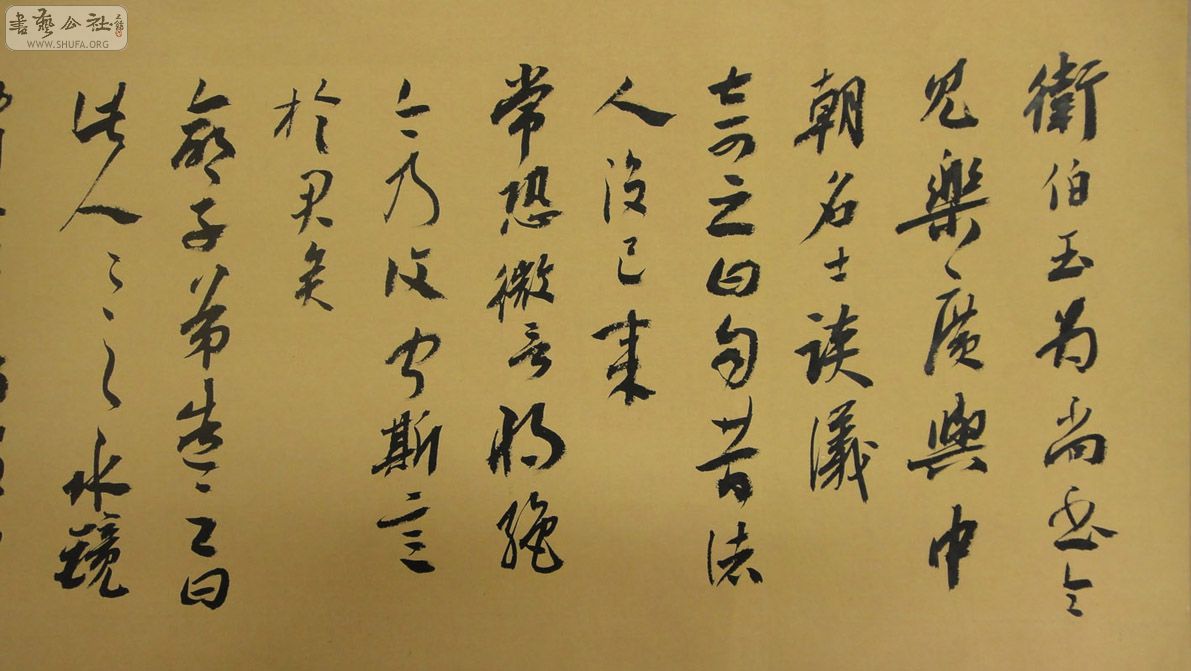 衛伯玉為尚書令
見樂廣與中
朝名士談議
奇之曰自昔諸
人沒已來
常恐微言將絕
今乃復聞斯言
於君矣
命子弟造之曰
此人〻之水鏡
書藝公社
WWW.SHUFA.ORG